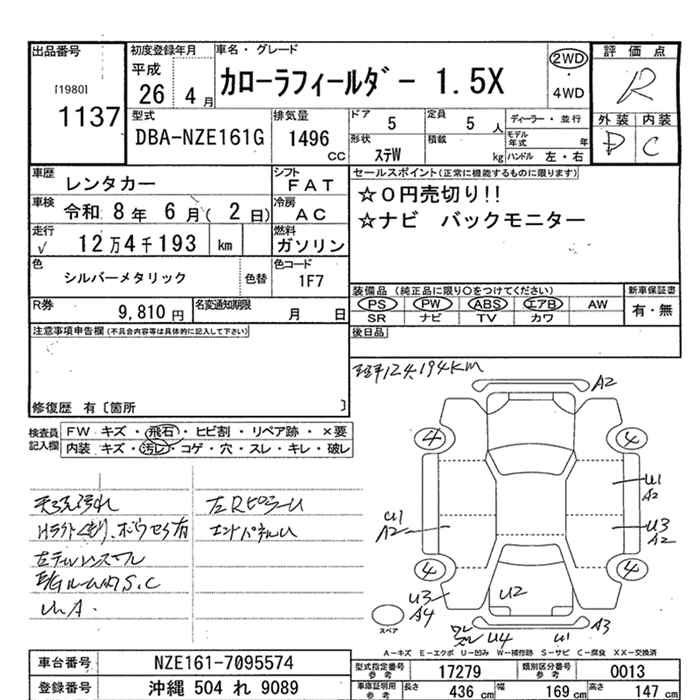 出品番号 初度登録年月 車名・グレード 評価点
[1980] 平成 カローラフィールダー 1.5X 2WD R
1137 26 4月 ・4WD
型式 排気量 ドア 5 定員 5人 ディーラー・並行 外装 内装
DBA-NZE161G 1496cc 形状 ステW 積載 kg モデル年式 年 D C
ハンドル 左・右
車歴 レンタカー シフト FAT セールスポイント(正常に機能するものに限ります)
車検 令和 8年 6月( 2日) 冷房 AC ☆0円売切り!!
走行 √ 12万4千193 km 燃料 ガソリン ☆ナビ バックモニター
色 シルバーメタリック 色替 色コード 1F7
装備品 (純正品に限り○をつけてください) 新車保証書
R券 9,810円 名変通知期限 月 日 PS PW ABS エアB AW 有・無
SR ナビ TV カワ
注意事項申告欄(不具合内容等は具体的に記入して下さい) 後日品
124,194KM
修復歴 有〔箇所 〕
検査員記入欄 FW キズ・飛石・ヒビ割・リペア跡・×要
内装 キズ・汚レ・コゲ・穴・スレ・キレ・破レ
A2
4 4
U1
A2
U1
A2
U3
A2
4 4
U3
A4
U2
U4 U1 A3
スペア
A-キズ E-エクボ U-凹み W-補修跡 S-サビ C-腐食 XX-交換済
左Rピラーu
エンドパネルu
車台番号 NZE161-7095574 型式指定番号 参考 17279 類別区分番号 参考 0013
登録番号 沖縄 504 れ 9089 車庫証明用 参考 長さ 436cm 幅 169cm 高さ 147cm